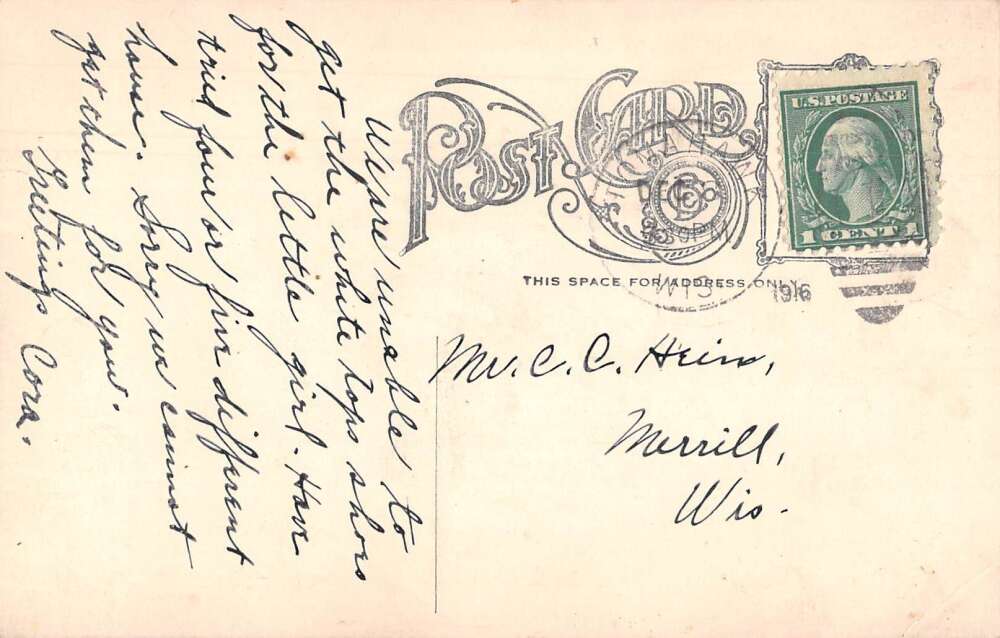 We are unable to
get the white tops shoes
for the little girl. Have
tried four or five different
house. Sorry we cannot
get them for you.
Greetings Cora.
Post Card
U.S. POSTAGE
1 CENT 1
DEC 8
30 PM
WIS
1916
THIS SPACE FOR ADDRESS ONLY.
Mr. C. C. Hein,
Merrill,
Wis.